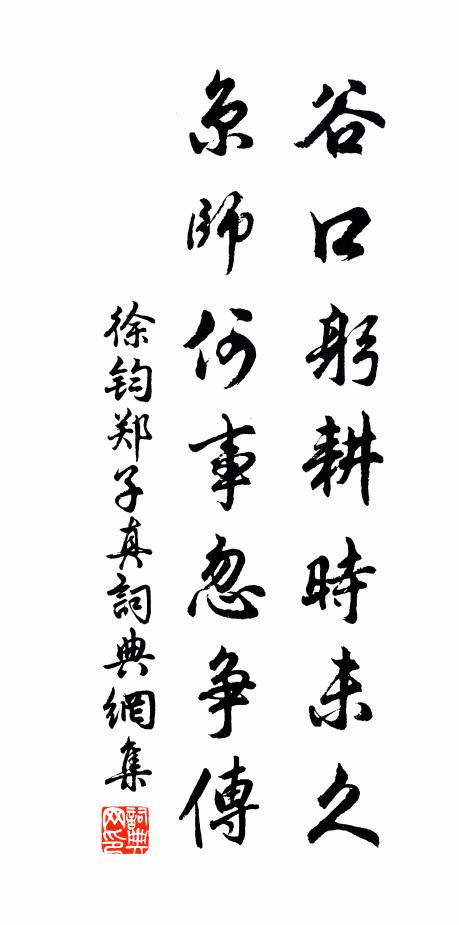 谷口躬耕時未久
京師何事忽争傳
徐鈞郑子真詞典網集
詞典网印